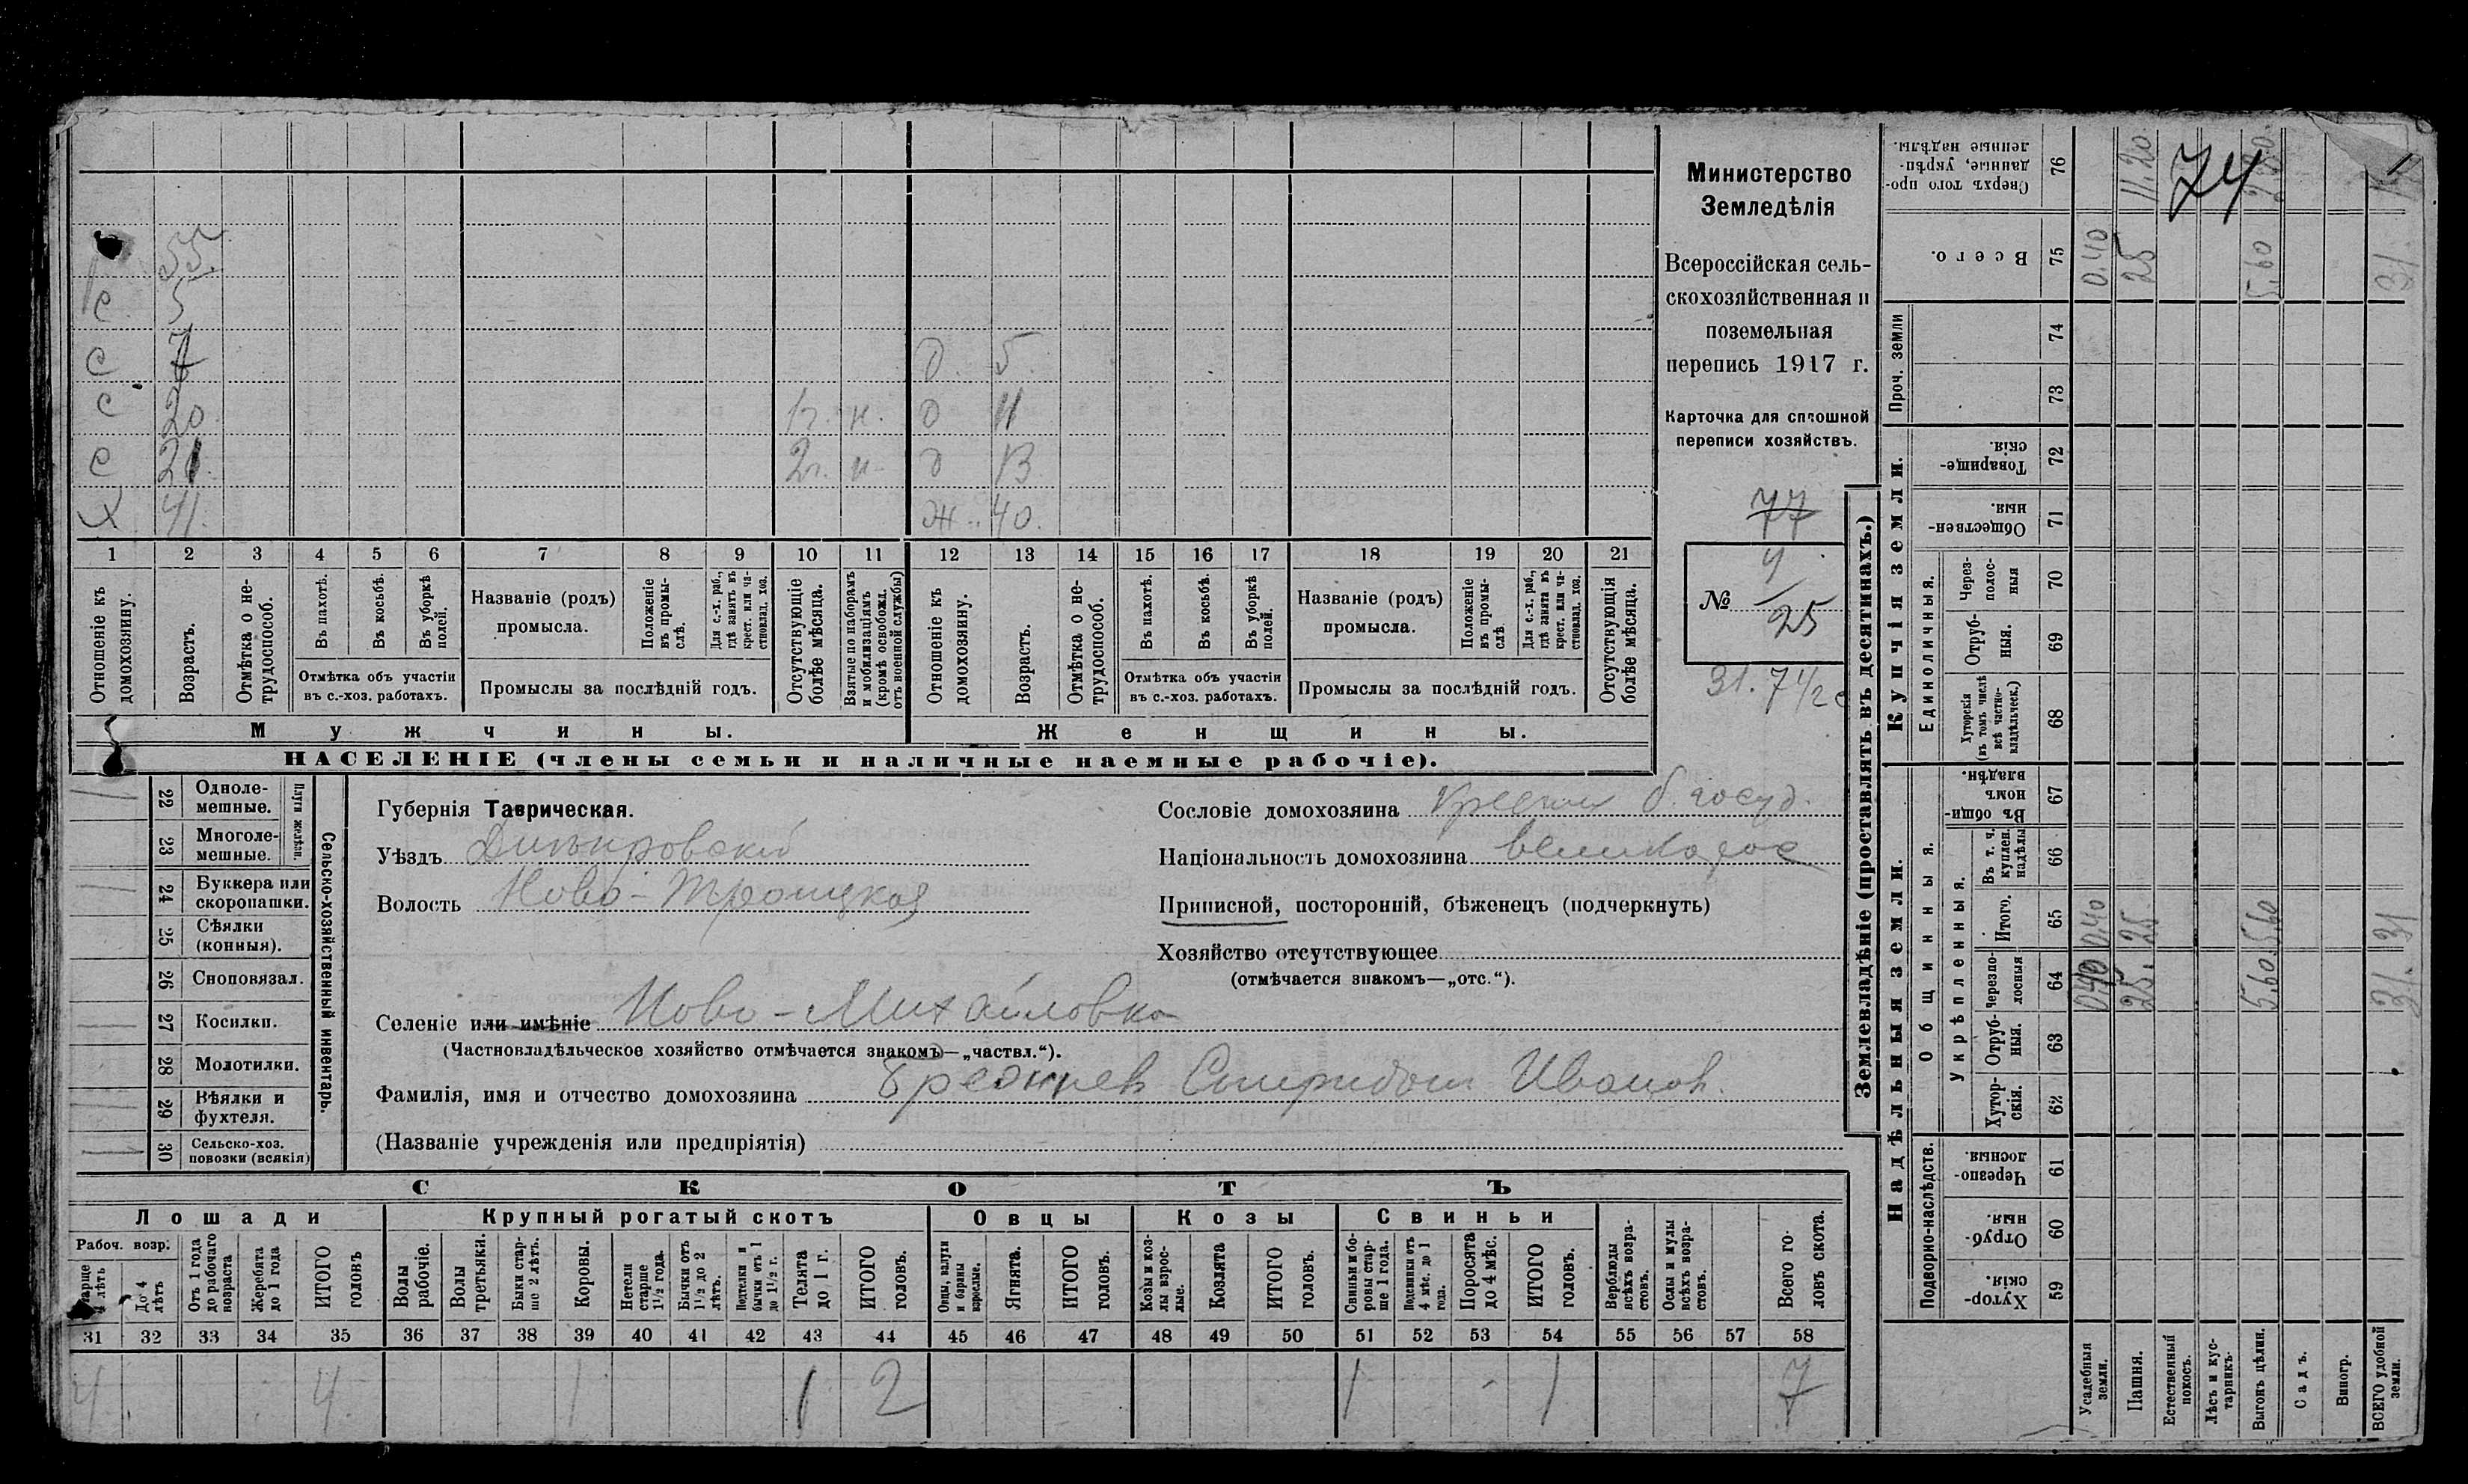 Министерство
Земледѣлія
Всероссійская сель-
скохозяйственная и
поземельная
перепись 1917 г.
Карточка для сплошной
переписи хозяйствъ.
77
№ 4/25
31. 74/2
74
55
С 5
С 7 д. 5
С 20 1г. н. д 11
С 21 2г. н. д 13
Х 41. ж. 40.
1 2 3 4 5 6 7 8 9 10 11 12 13 14 15 16 17 18 19 20 21
Отношеніе къ домохозяину.
Возрастъ.
Отмѣтка о не-трудоспособ.
Въ пахотѣ.
Въ косьбѣ.
Въ уборкѣ полей.
Отмѣтка объ участіи въ с.-хоз. работахъ.
Названіе (родъ) промысла.
Положеніе въ промы-слѣ.
Для с.-х. раб., гдѣ занятъ въ крест. или ча-стновлад. хоз.
Промыслы за послѣдній годъ.
Отсутствующіе болѣе мѣсяца.
Взятые по наборамъ и мобилизаціямъ (кромѣ освобожд. отъ военной службы)
Отношеніе къ домохозяину.
Возрастъ.
Отмѣтка о не-трудоспособ.
Въ пахотѣ.
Въ косьбѣ.
Въ уборкѣ полей.
Отмѣтка объ участіи въ с.-хоз. работахъ.
Названіе (родъ) промысла.
Положеніе въ промы-слѣ.
Для с.-х. раб., гдѣ занята въ крест. или ча-стновлад. хоз.
Промыслы за послѣдній годъ.
Отсутствующія болѣе мѣсяца.
Мужчины. Женщины.
НАСЕЛЕНІЕ (члены семьи и наличные наемные рабочіе).
22 Одноле-мешные.
23 Многоле-мешные.
Плуги желѣзн.
24 Буккера или скоропашки.
25 Сѣялки (конныя).
26 Сноповязал.
27 Косилки.
28 Молотилки.
29 Вѣялки и фухтеля.
30 Сельско-хоз. повозки (всякія)
Сельско-хозяйственный инвентарь.
Губернія Таврическая.
Уѣздъ Днѣпровскій
Волость Ново-Троицкая
Сословіе домохозяина крестьян б. госуд.
Національность домохозяина великорос
Приписной, посторонній, бѣженецъ (подчеркнуть)
Хозяйство отсутствующее
(отмѣчается знакомъ—„отс.“).
Селеніе или имѣніе Ново-Михайловка
(Частновладѣльческое хозяйство отмѣчается знакомъ—„частвл.“).
Фамилія, имя и отчество домохозяина Спиридон Иванов.
(Названіе учрежденія или предпріятія)
СКОТЪ
Лошади Крупный рогатый скотъ Овцы Козы Свиньи
Рабоч. возр.
Старше 4 лѣтъ
До 4 лѣтъ
Отъ 1 года до рабочаго возраста
Жеребята до 1 года
ИТОГО головъ
Волы рабочіе.
Волы третьяки.
Быки стар-ше 2 лѣтъ.
Коровы.
Нетели старше 1½ года.
Бычки отъ 1½ до 2 лѣтъ.
Подтелки и бычки отъ 1 до 1½ г.
Телята до 1 г.
ИТОГО головъ.
Овцы, валухи и бараны взрослые.
Ягнята.
ИТОГО головъ.
Козы и коз-лы взрос-лые.
Козлята
ИТОГО головъ.
Свиньи и бо-ровы стар-ше 1 года.
Подсвинки отъ 4 мѣс. до 1 года.
Поросята до 4 мѣс.
ИТОГО головъ.
Верблюды всѣхъ возра-стовъ.
Ослы и мулы всѣхъ возра-стовъ.
Всего го-ловъ скота.
31 32 33 34 35 36 37 38 39 40 41 42 43 44 45 46 47 48 49 50 51 52 53 54 55 56 57 58
4 4 1 1 2 1 - 1 7
Землевладѣніе (проставлять въ десятинахъ.)
Надѣльныя земли. Купчія земли. Проч. земли
Подворно-наслѣдств.
Общинныя.
Укрѣпленныя.
Единоличныя.
Хутор-скія. 59
Отруб-ныя. 60
Черезпо-лосныя. 61
Хутор-скія. 62
Отруб-ныя. 63
Черезпо-лосныя 64
Итого. 65
Въ т. ч. куплен. надѣлы 66
Въ общин-номъ владѣн. 67
Хуторскія (въ томъ числѣ всѣ частно-владѣльческ.) 68
Отруб-ныя. 69
Через-полос-ныя 70
Обществен-ныя. 71
Товарище-скія. 72
73
74
Всего. 75
Сверхъ того про-данные, укрѣп-ленные надѣлы. 76
Усадебныя земли. 0.40 0.40 0.40
Пашня. 25. 25 25 11.20
Естественный покосъ.
Лѣсъ и кус-тарникъ.
Выгонъ цѣлин. 5.60 5.60 5.60
Садъ.
Виногр.
ВСЕГО удобной земли. 31. 31 31.